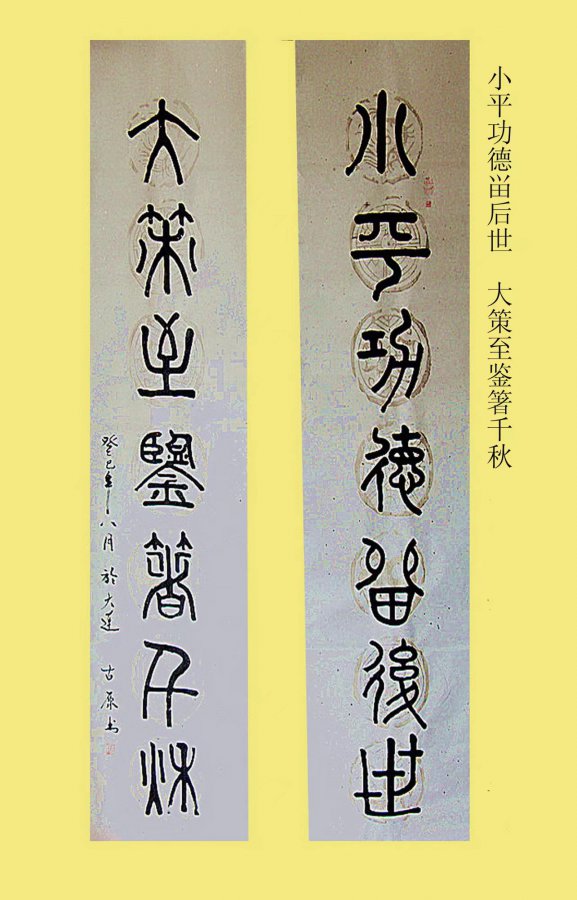 小平功德畄后世　大策至鉴箸千秋
小平功德畱後世
大策至鑒箸千秋
癸巳年八月於大連　古原书